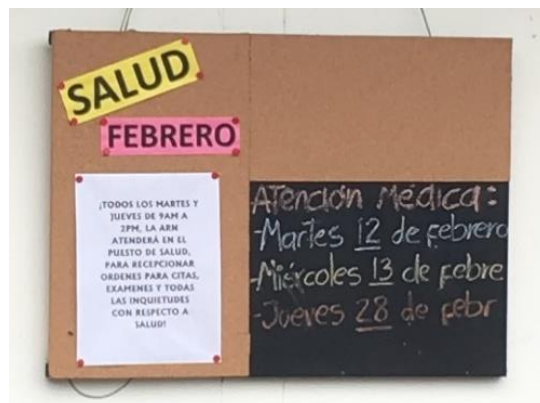 SALUD
FEBRERO
¡TODOS LOS MARTES Y
JUEVES DE 9AM A
2PM, LA ARN
ATENDERÁ EN EL
PUESTO DE SALUD,
PARA RECEPCIONAR
ORDENES PARA CITAS,
EXAMENES Y TODAS
LAS INQUIETUDES
CON RESPECTO A
SALUD!
Atención Médica:
-Martes 12 de febrero
-Miércoles 13 de febre
-Jueves 28 de febr